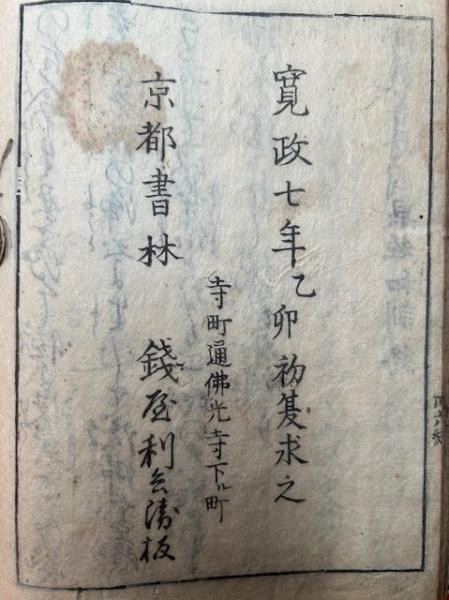 寛政七年乙卯初夏求之
寺町通佛光寺下ル町
京都書林 錢屋利兵衛板